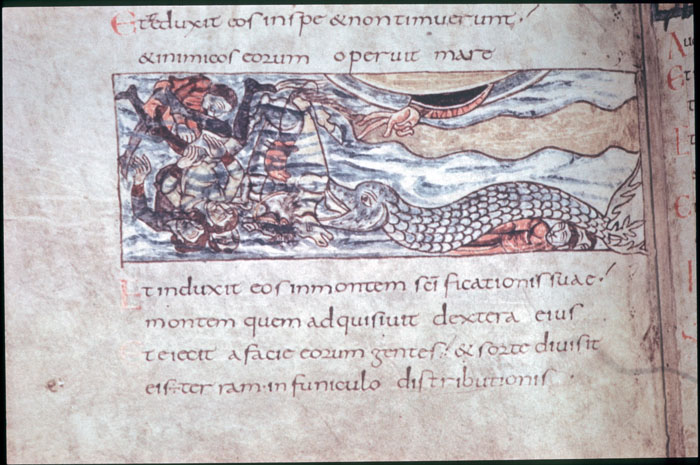 Et eduxit eos in spe & non timuerunt
& inimicos eorum operuit mare
Et induxit eos in montem sc̄ificationis suae
montem quem adquisivit dextera eius
Et eiecit a facie eorum gentes & sorte divisit
eis terram in funiculo distributionis